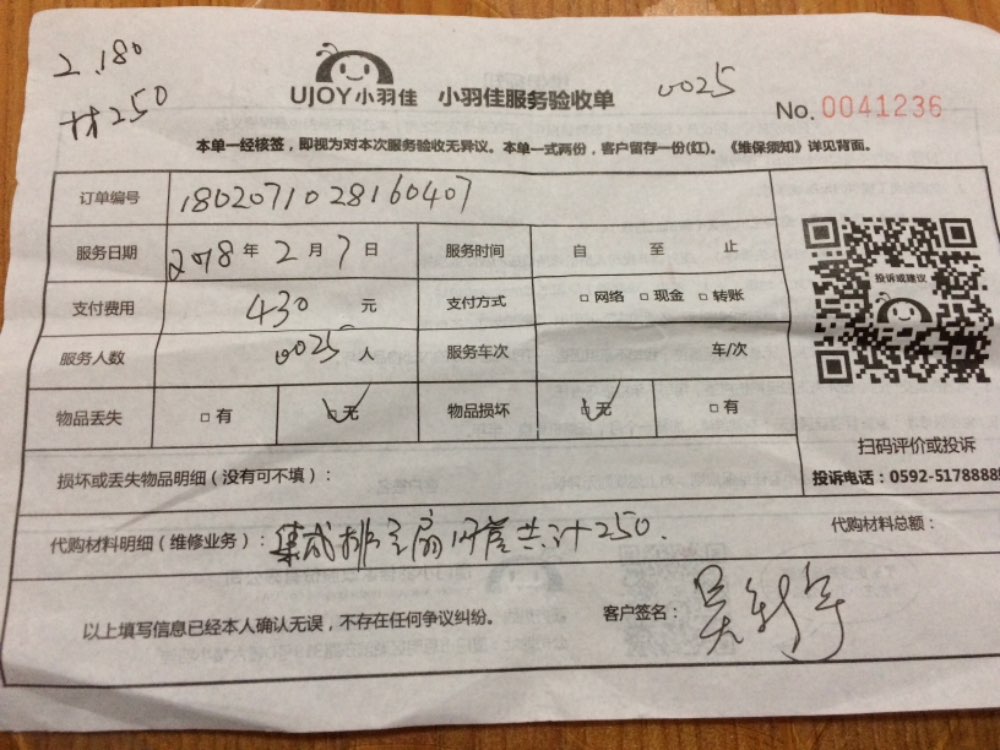 2.180
材250
UJOY小羽佳 小羽佳服务验收单
0025
No. 0041236
本单一经核签，即视为对本次服务验收无异议。本单一式两份，客户留存一份(红)。《维保须知》详见背面。
订单编号 18020710 28160407
服务日期 2018年2月7日 服务时间 自 至 止
支付费用 430 元 支付方式 □ 网络 □ 现金 □ 转账
服务人数 0025 人 服务车次 车/次
物品丢失 □ 有 □ 无 物品损坏 □ 无 □ 有
投诉或建议
扫码评价或投诉
投诉电话：0592-5178888
损坏或丢失物品明细（没有可不填）：
代购材料明细（维修业务）：集成排气扇1个 共计250.
代购材料总额：
以上填写信息已经本人确认无误，不存在任何争议纠纷。
客户签名：